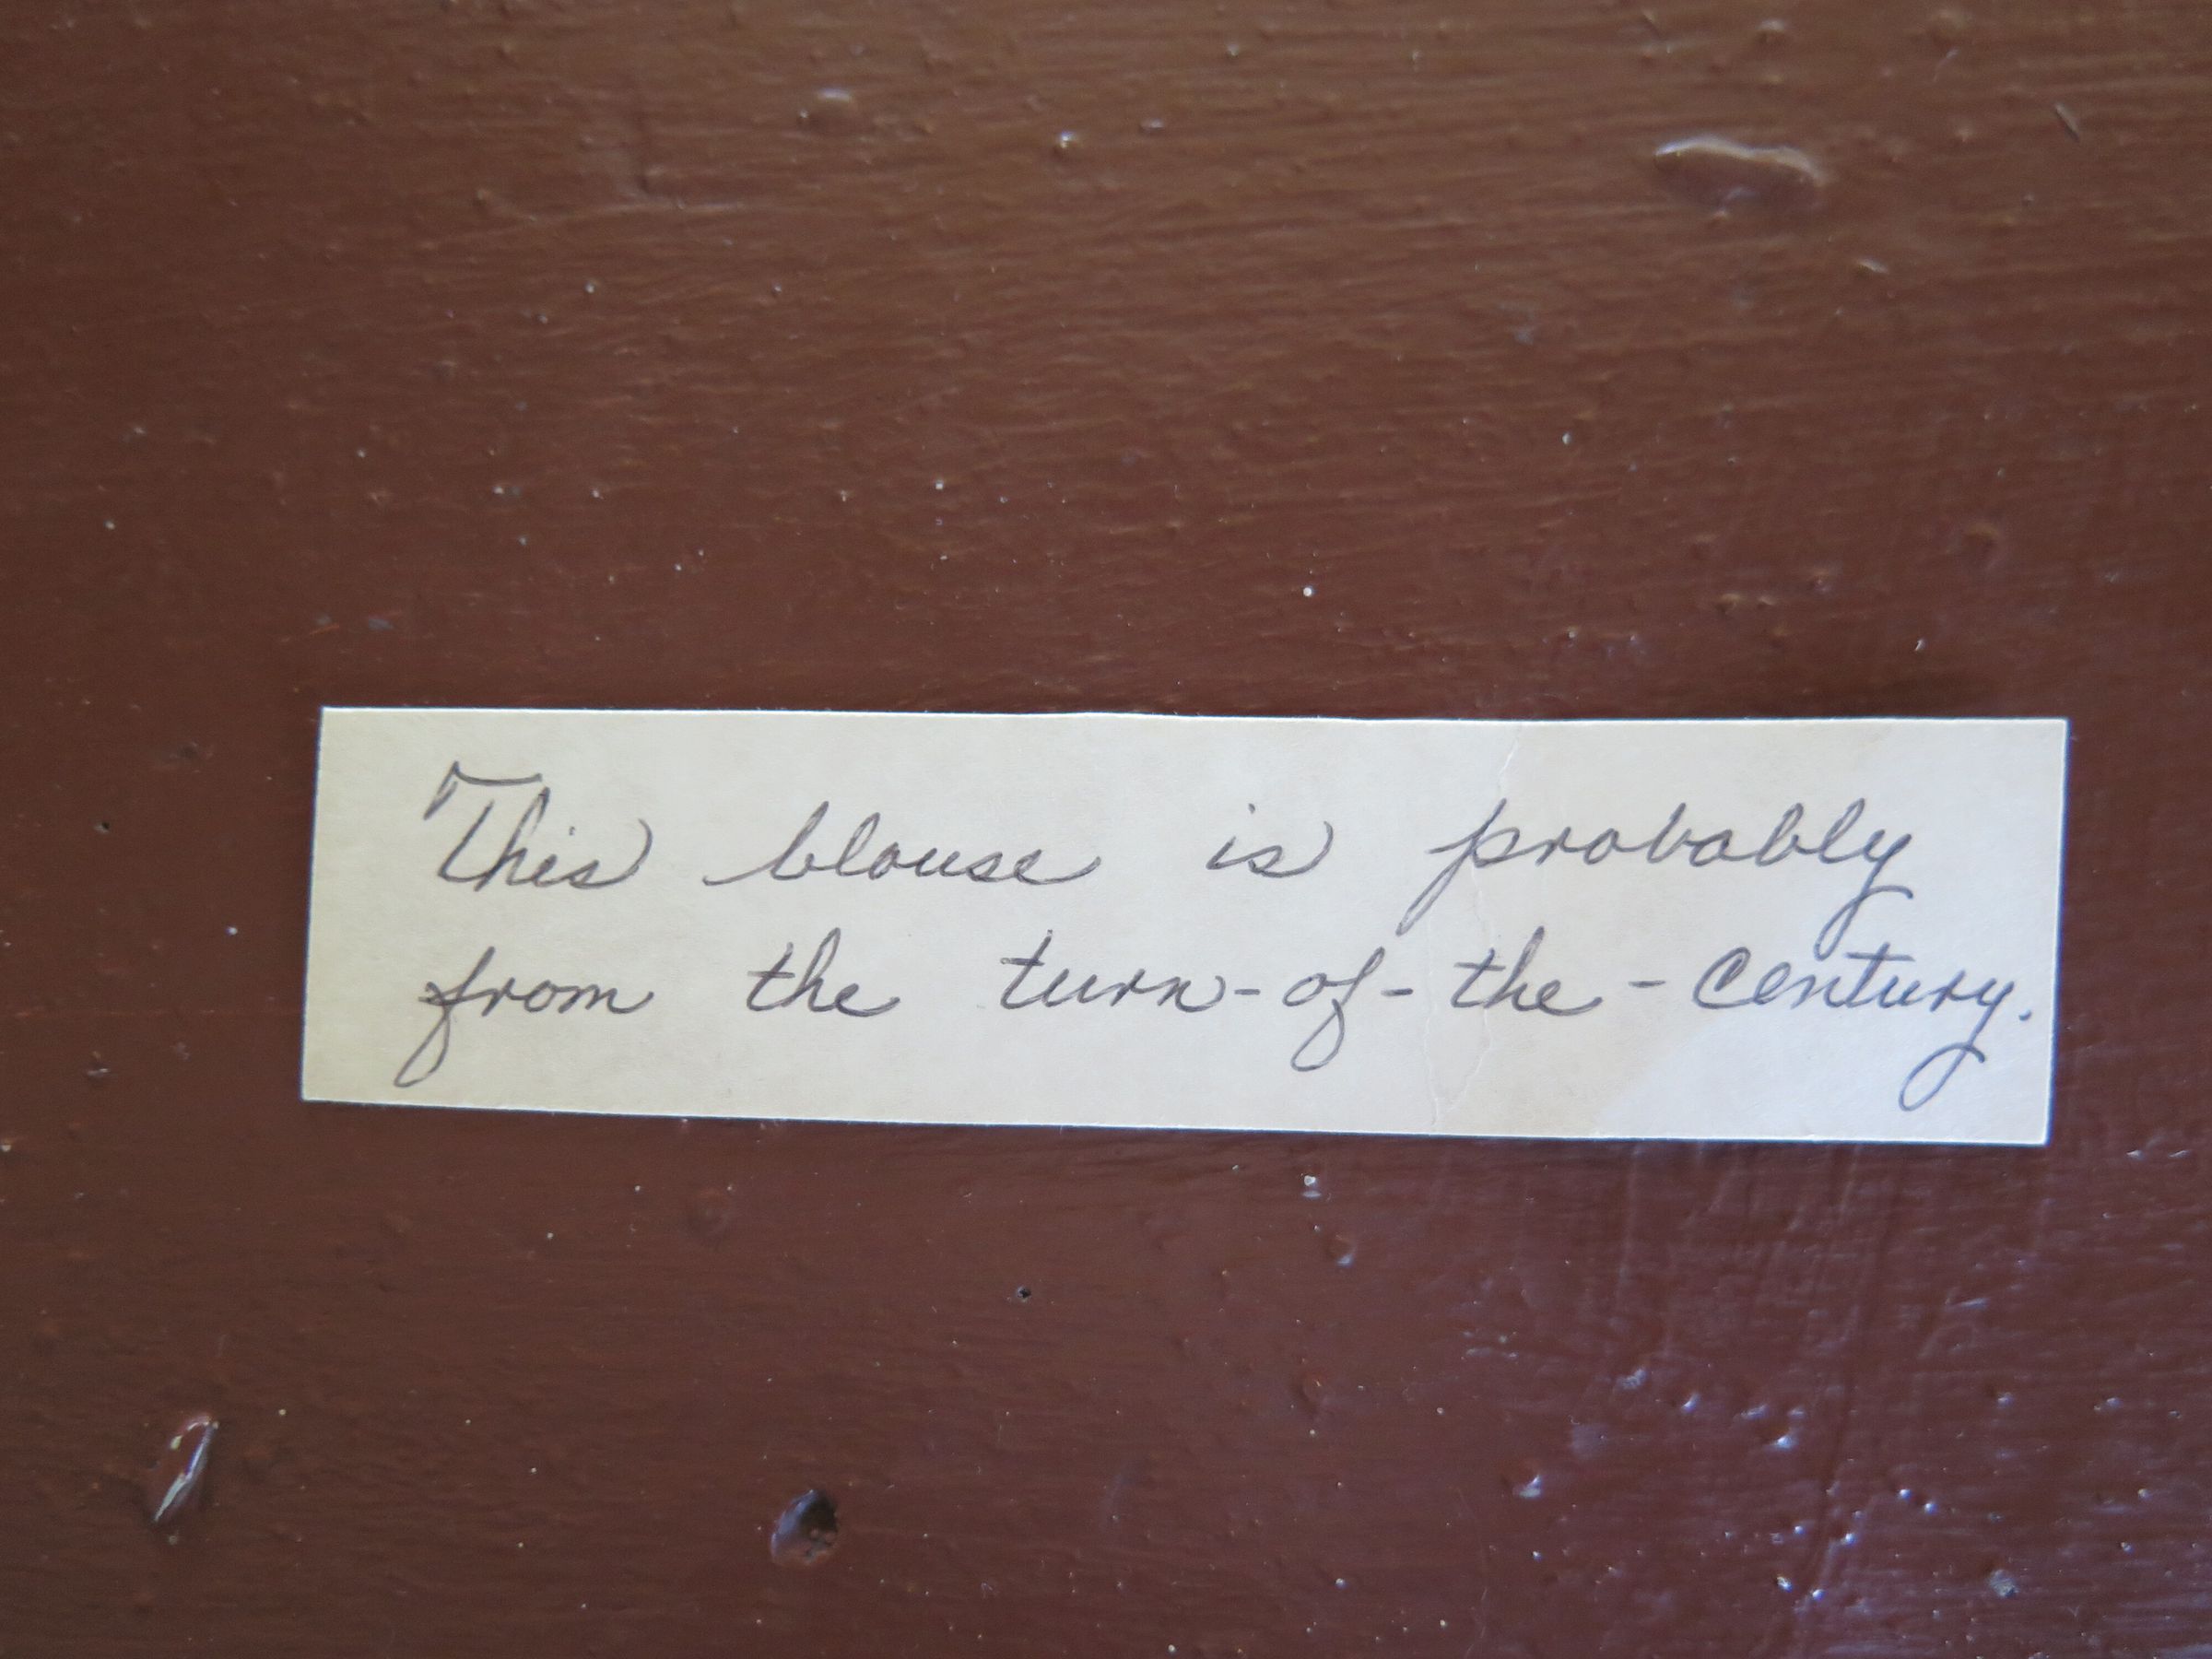 This blouse is probably
from the turn-of-the-century.